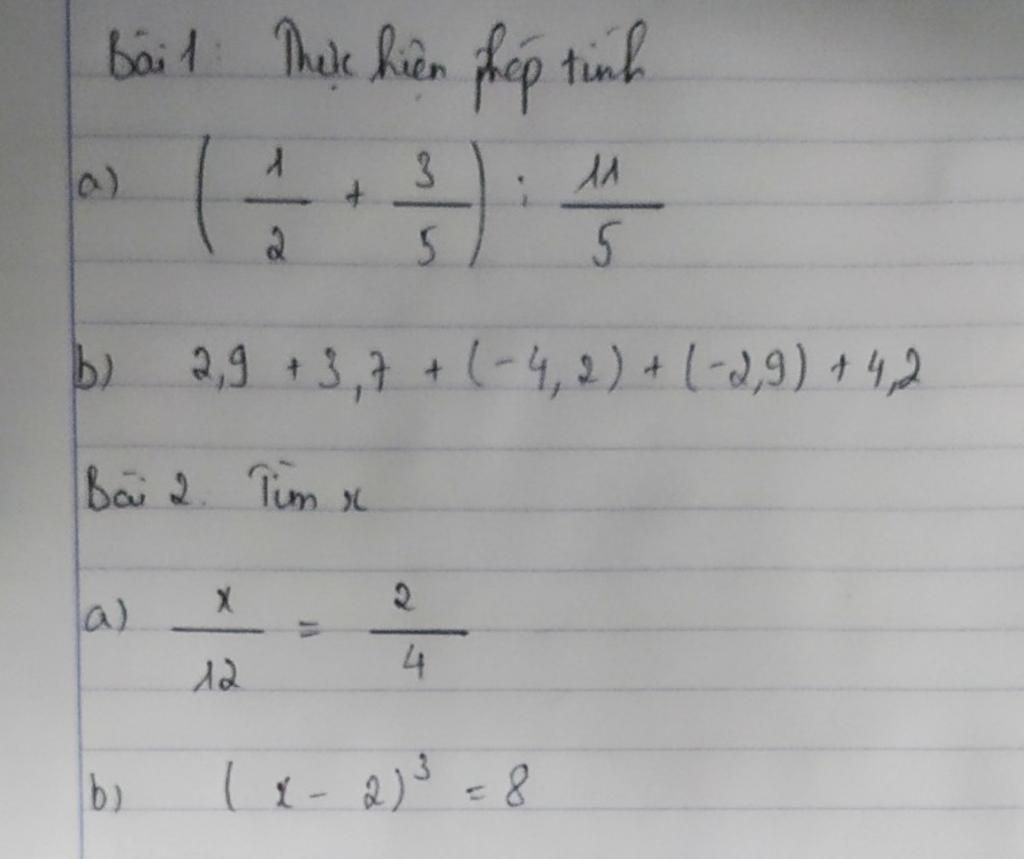 Bài 1: Thực hiện phép tính
a) (1/2 + 3/5) : 11/5
b) 2,9 + 3,7 + (-4,2) + (-2,9) + 4,2
Bài 2. Tìm x
a) x/12 = 2/4
b) (x - 2)³ = 8